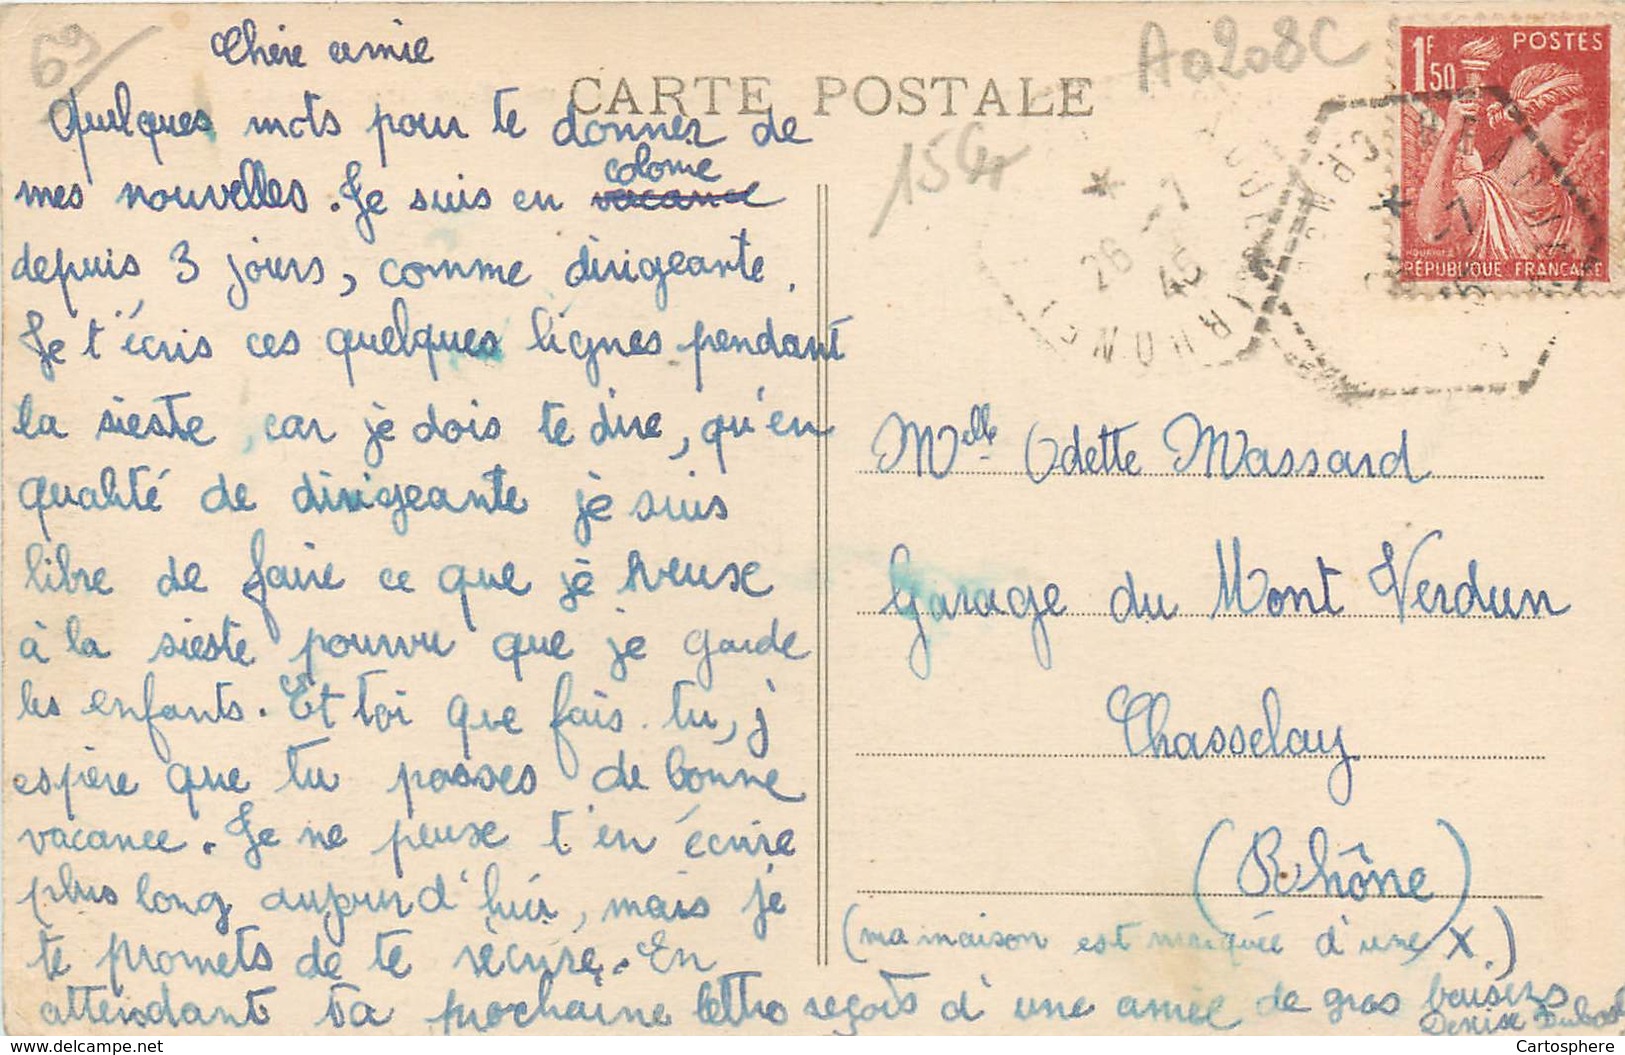 69
Chère amie
CARTE POSTALE
A0208C
15Gr
1F50
POSTES
RÉPUBLIQUE FRANÇAISE
26 -7 45
(RHONE)
Quelques mots pour te donner de
mes nouvelles. Je suis en vacance colonie
depuis 3 jours, comme dirigeante.
Je t'écris ces quelques lignes pendant
la sieste, car je dois te dire, qu'en
qualité de dirigeante je suis
libre de faire ce que je veuxe
à la sieste pourvu que je garde
les enfants. Et toi que fais-tu, j'
espère que tu passes de bonne
vacance. Je ne peuxe t'en écrire
plus long aujourd'hui, mais je
te promets de te récrire. En
attendant ta prochaine lettre reçois d'une amie de gros baisers
Denise
Melle Odette Massard
Garage du Mont Verdun
Chasselay
(Rhône)
(ma maison est marquée d'une X.)
www.delcampe.net
Cartosphere